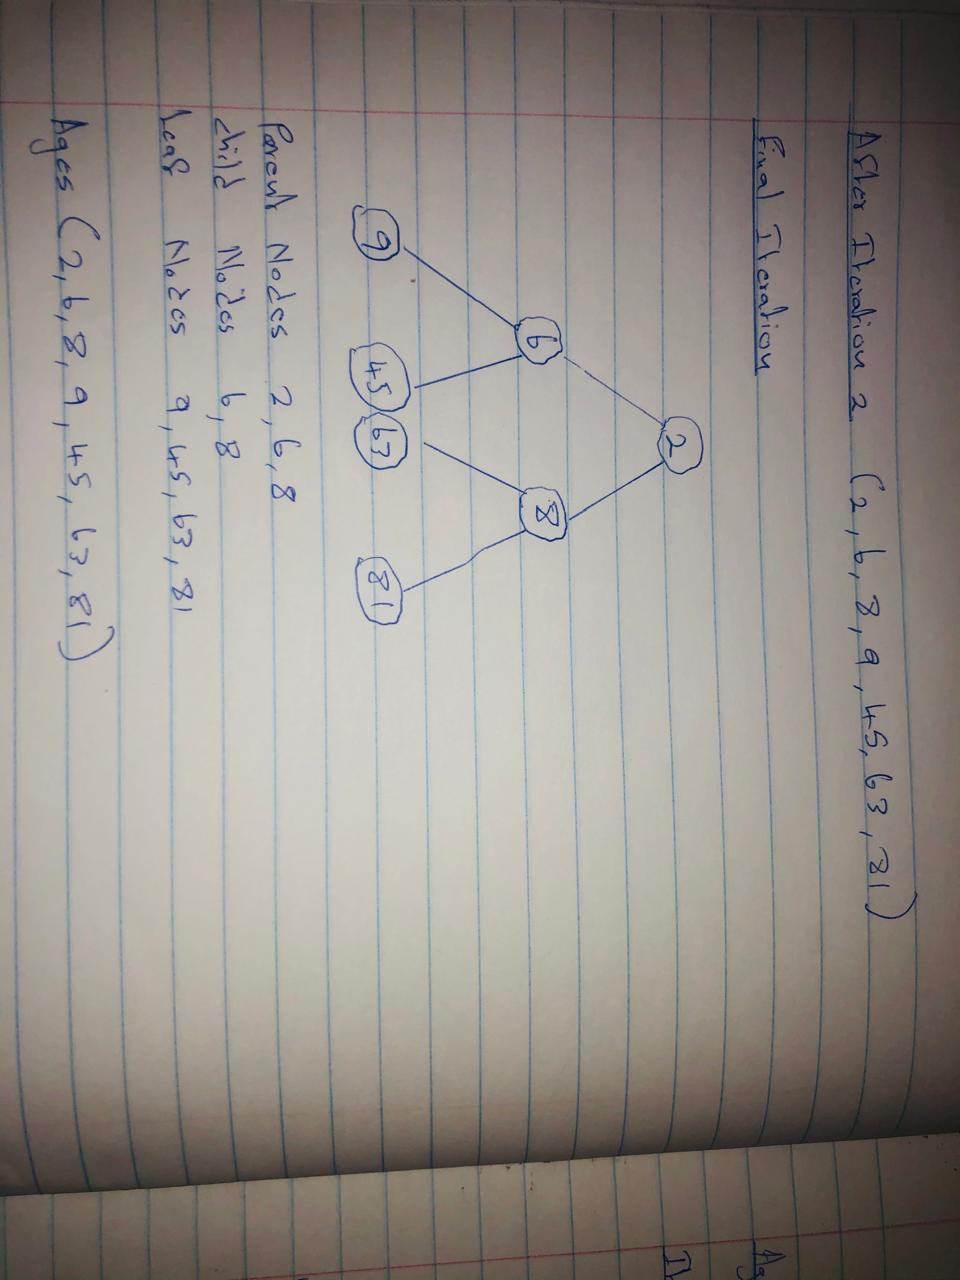 After Iteration 2 (2, 6, 8, 9, 45, 63, 81)
Final Iteration
2
6 8
9 45 63 81
Parent Nodes 2, 6, 8
child Nodes 6, 8
Leaf Nodes 9, 45, 63, 81
Ages (2, 6, 8, 9, 45, 63, 81)